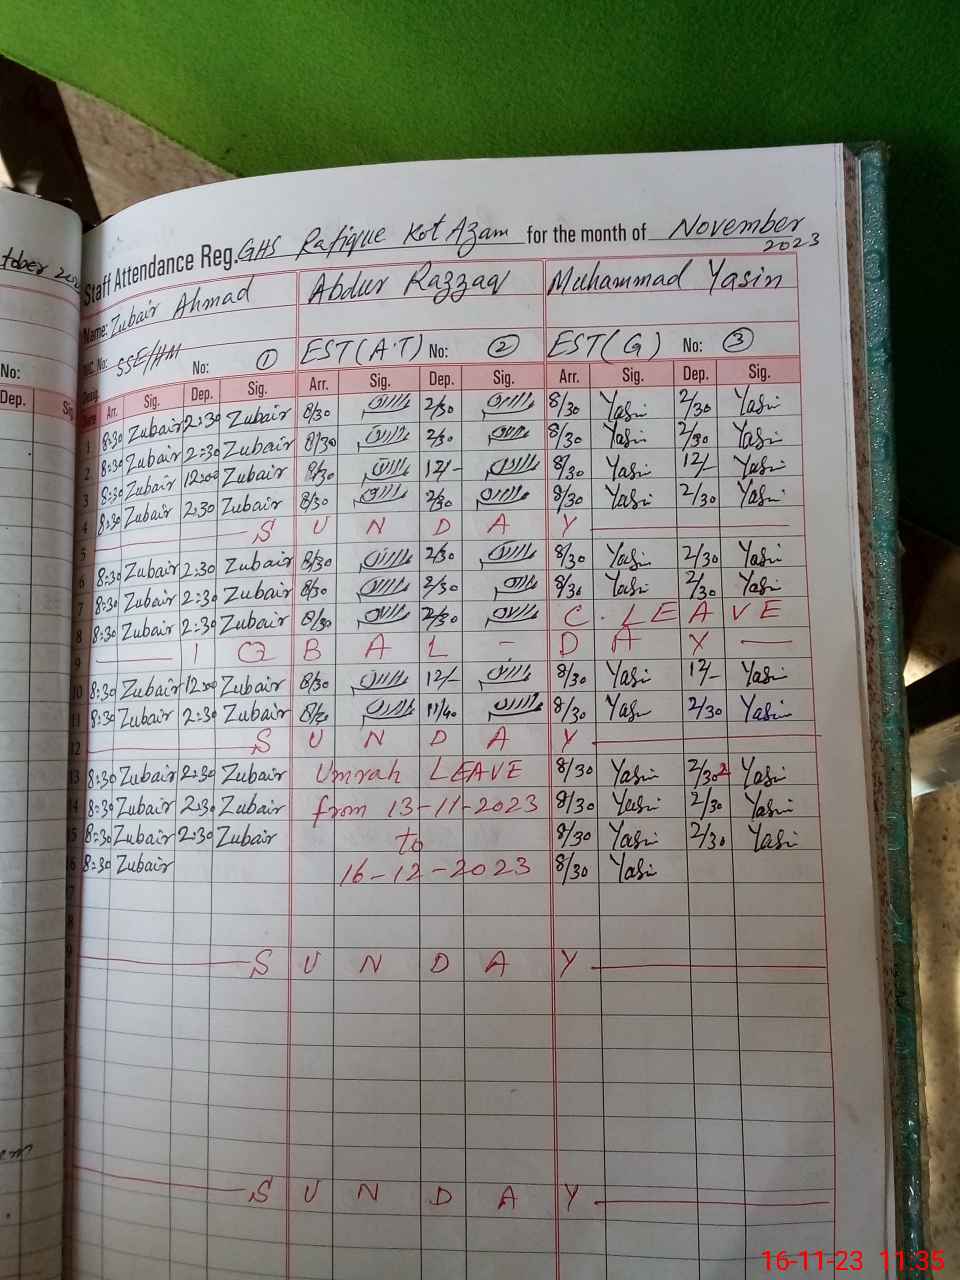 tober 202
Staff Attendance Reg. GHS Rafique Kot Azam for the month of November
2023
Name: Zubair Ahmad Abdur Razzaq Muhammad Yasin
SSE/HM No: 1 EST(A.T) No: 2 EST(G) No: 3
No:
Dep. Sig
Arr. Sig. Dep. Sig. Arr. Sig. Dep. Sig. Arr. Sig. Dep. Sig.
1 8:30 Zubair 2:30 Zubair 8/30 2/30 8/30 Yasin 2/30 Yasin
2 8:30 Zubair 2:30 Zubair 8/30 2/30 8/30 Yasin 2/30 Yasin
3 8:30 Zubair 12:00 Zubair 8/30 12/- 8/30 Yasin 12/- Yasin
4 8:30 Zubair 2:30 Zubair 8/30 2/30 8/30 Yasin 2/30 Yasin
5 S U N D A Y
6 8:30 Zubair 2:30 Zubair 8/30 2/30 8/30 Yasin 2/30 Yasin
7 8:30 Zubair 2:30 Zubair 8/30 2/30 8/30 Yasin 2/30 Yasin
8 8:30 Zubair 2:30 Zubair 8/30 2/30 C. LEAVE
9 I Q B A L - D A Y
10 8:30 Zubair 12:00 Zubair 8/30 12/- 8/30 Yasin 12/- Yasin
11 8:30 Zubair 2:30 Zubair 8/30 11/40 8/30 Yasin 2/30 Yasin
12 S U N D A Y
13 8:30 Zubair 2:30 Zubair Umrah LEAVE 8/30 Yasin 2/30 Yasin
14 8:30 Zubair 2:30 Zubair from 13-11-2023 8/30 Yasin 2/30 Yasin
15 8:30 Zubair 2:30 Zubair to 8/30 Yasin 2/30 Yasin
16 8:30 Zubair 16-12-2023 8/30 Yasin
S U N D A Y
S U N D A Y
16-11-23 11:35